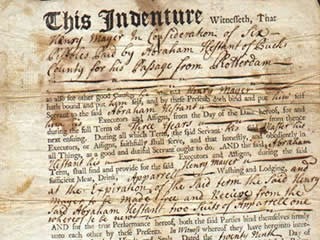 This Indenture Witnesseth, That
Henry Mayer In Consideration of Six
Pistoles Paid by Abraham Hestant of Bucks
County for his Passage from Rotterdam
as also for other Henry Mayer
hath bound and put him self, and by these Presents doth bind and put him self
Servant to the said Abraham Hestant
Executors and Assigns, from the Day of the Date hereof, for and
during the full Term of Three Years
next ensuing. During all which Term, the said Servant the said his
Executors, or Assigns, faithfully shall serve, and that honestly, and obediently in
all Things, as a good and dutiful Servant ought to do. AND the said Abraham
Hestant his Executors and Assigns, during the said
Term, shall find and provide for the said Henry Mayer
sufficient Meat, Drink, Apparel Washing and Lodging, and
at the Expiration of the Said term the said Henry
Mayer to be made free and Receive from the
Said Abraham Hestant two Suits of Apparrell one
whereof to be new
AND for the true Performance hereof, both Parties bind themselves firmly
unto each other by these Presents. In Witness whereof they have hereunto inter-
Dated the twenty Ninth Day of